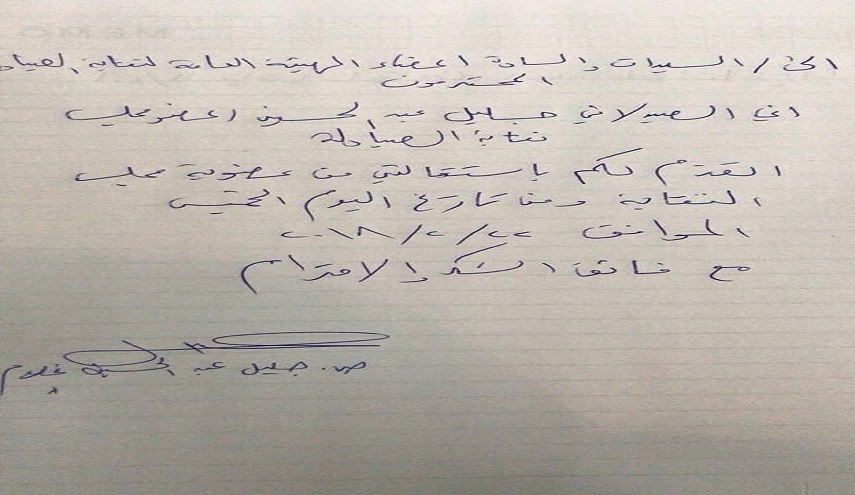 الى / السيدات والسادة اعضاء الهيئة العامة لنقابة الصيادلة
المحترمون
اني الصيدلاني جليل عبد الحسين (عضو مجلس
نقابة الصيادلة
اتقدم لكم بإستقالتي من عضوية مجلس
النقابة ومن تاريخ اليوم الخميس
الموافق ٢٢/٢/٢٠١٨
مع فائق الشكر والاحترام
ص. جليل عبد الحسين